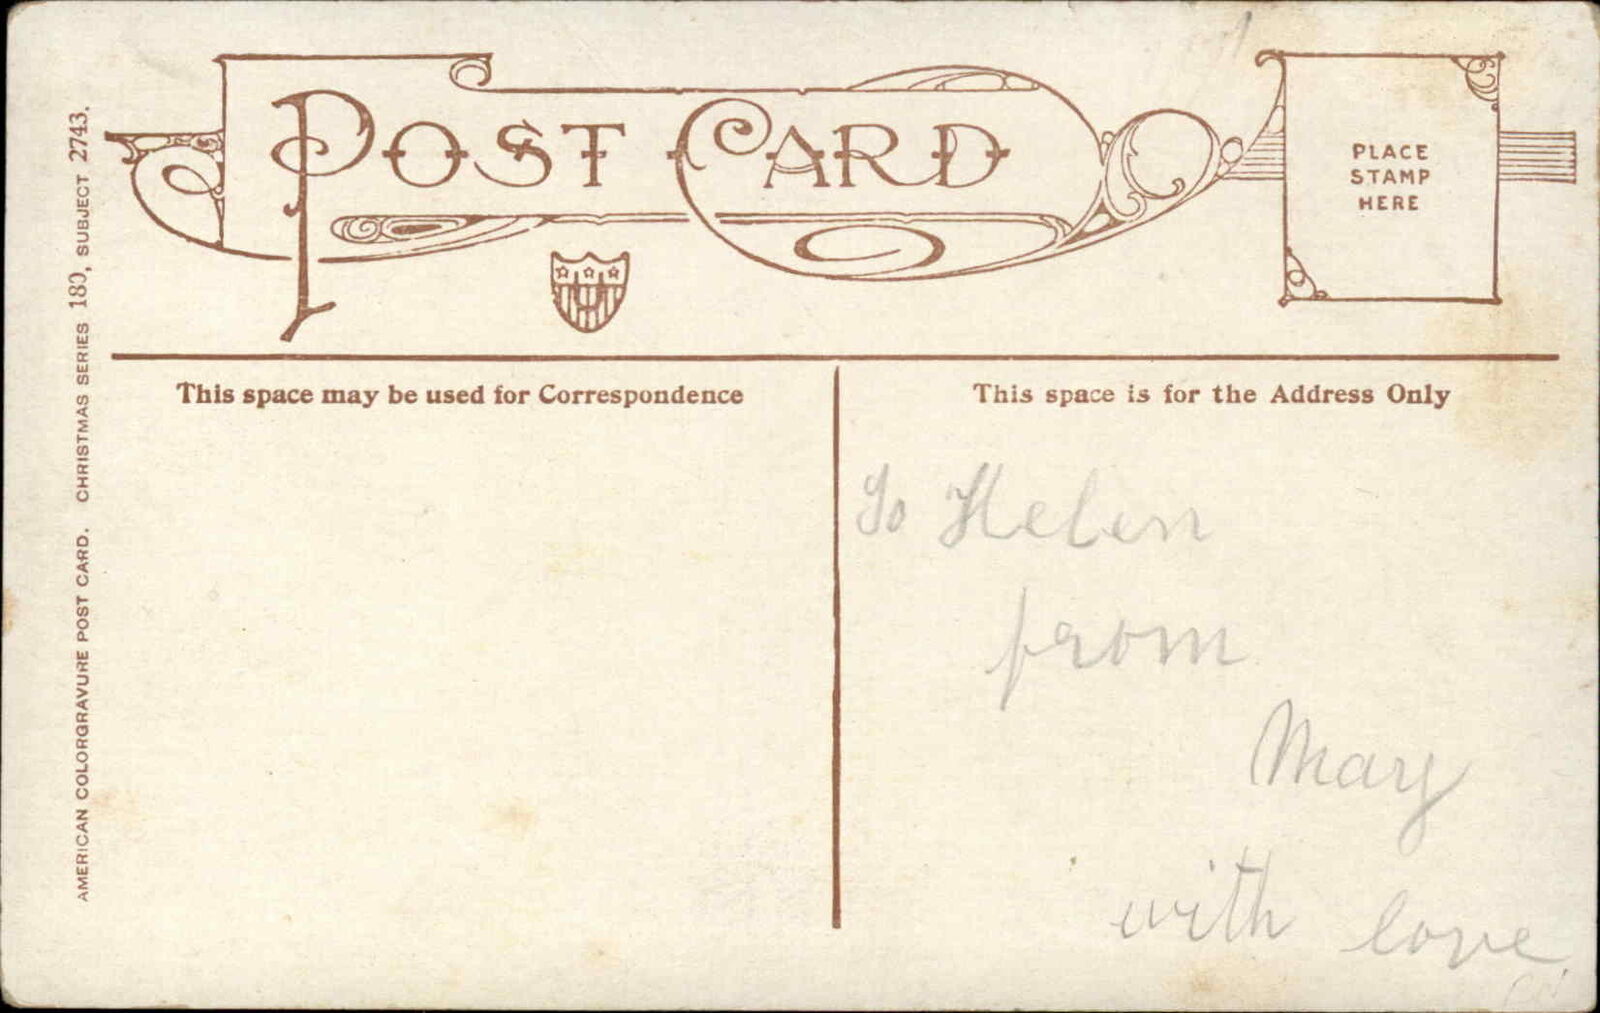 POST CARD
PLACE
STAMP
HERE
This space may be used for Correspondence
This space is for the Address Only
To Helen
from
Mary
with love
AMERICAN COLORGRAVURE POST CARD. CHRISTMAS SERIES 180, SUBJECT 2743.